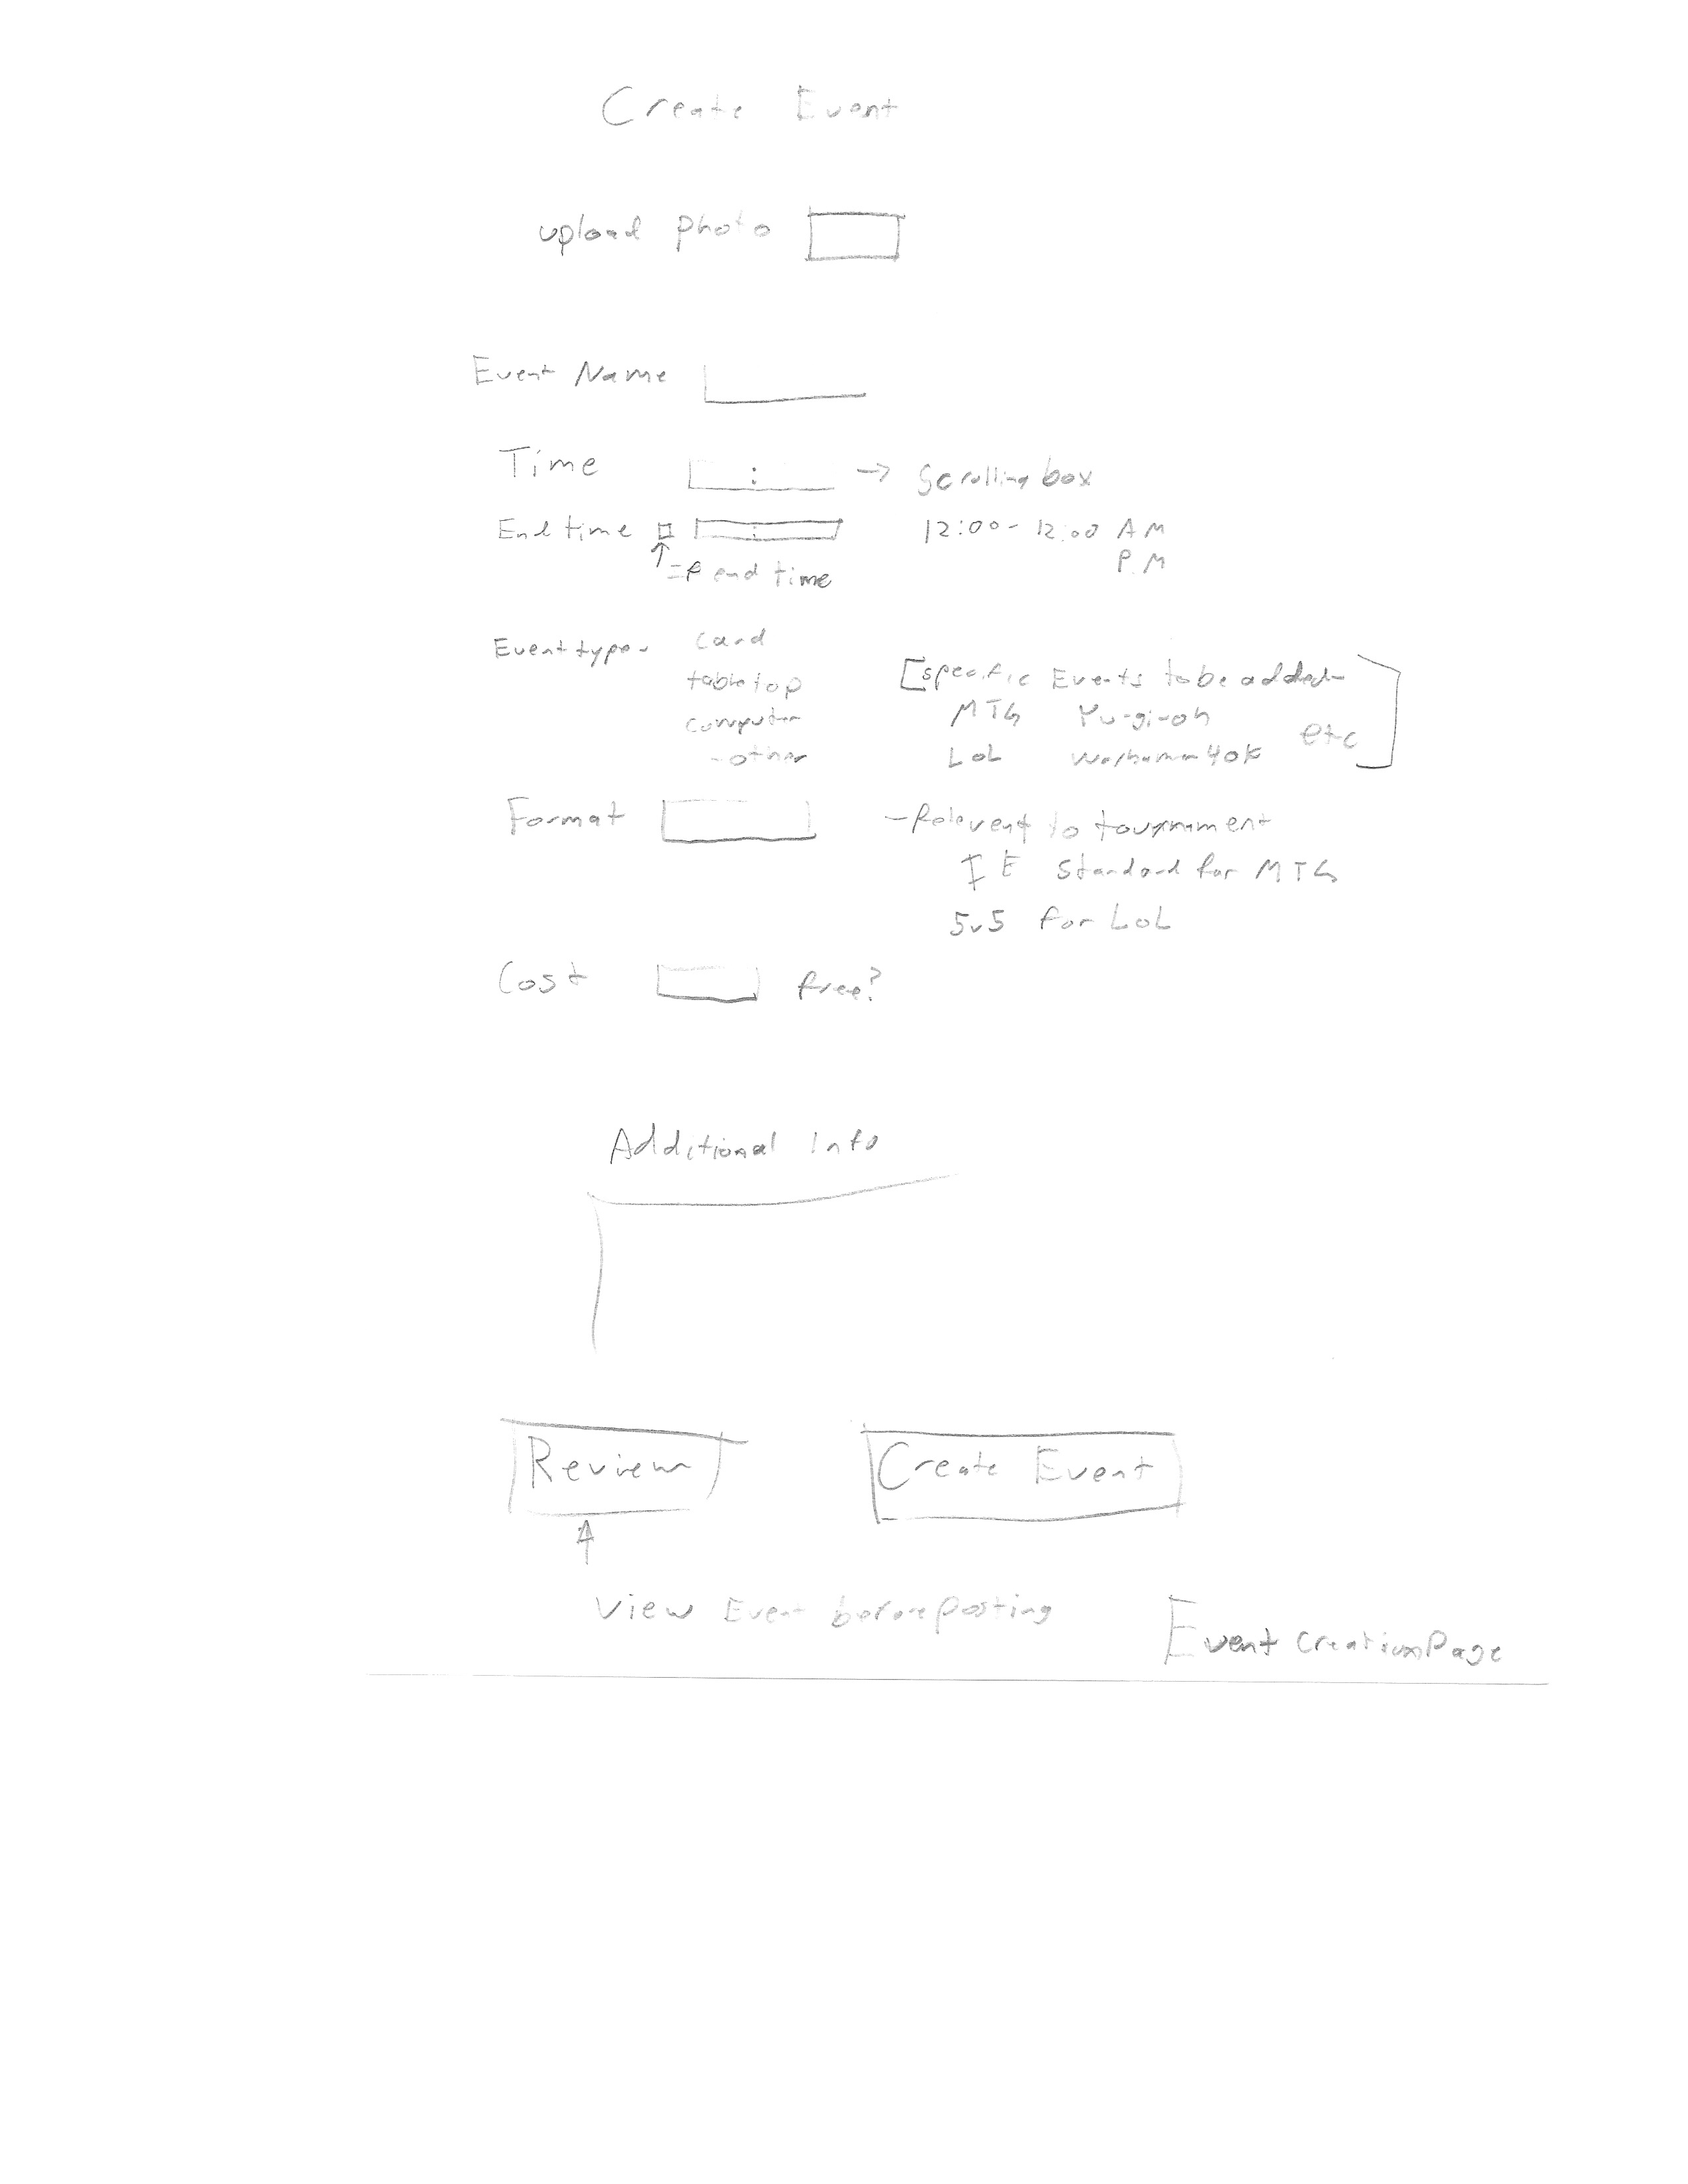 Create Event
upload photo
Event Name
Time : → Scrolling box
End time : 12:00 - 12:00 AM
PM
=if end time
Event type - card
tabletop [specific Events to be added -
MTG Yu-gi-oh
computer etc]
- other LoL Warhammer 40K
Format - Relevent to tournament
IE Standard for MTG
5v5 for LoL
Cost free?
Additional Info
Review Create Event
View Event before posting
Event Creation Page